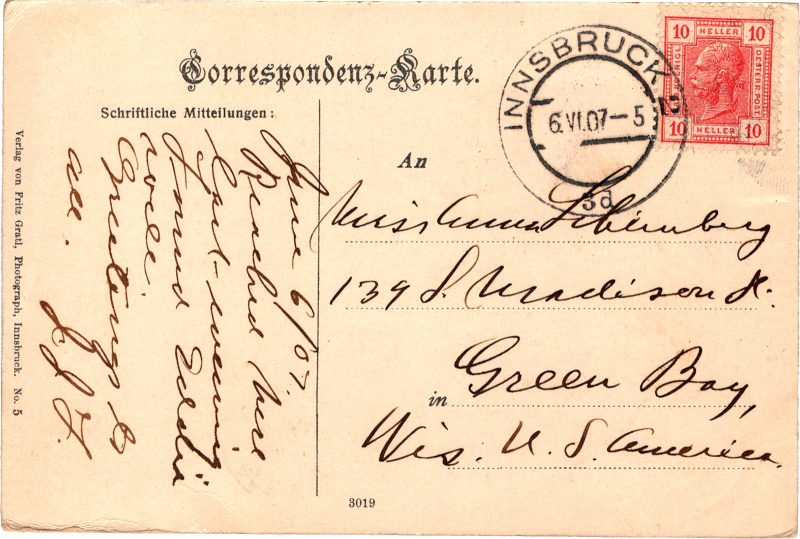 Correspondenz-Karte.
Schriftliche Mitteilungen:
June 6/07.
Reached here
last evening
found Eddie
well
Greetings to
all.
Verlag von Fritz Gratl, Photograph, Innsbruck. No. 5
INNSBRUCK
6.VI.07-5
3d
10 HELLER 10
KAIS. KÖNIGL.
OESTERR. POST
10 HELLER 10
An
Miss Anna
139 S. Madison St.
in Green Bay,
Wis. U. S. America.
3019